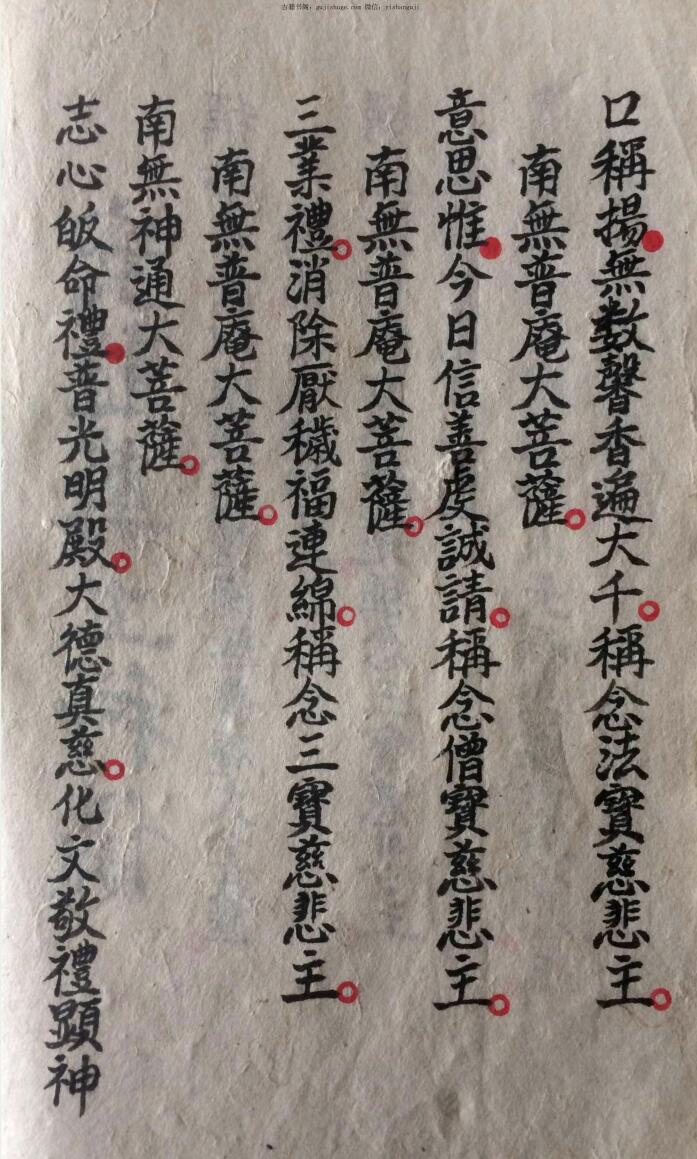 古籍书阁：gujishuge.com 微信：yishanguji
口稱揚無数馨香遍大千稱念法寳慈悲主
南無普庵大菩薩
意思惟今日信善虔誠請稱念僧寳慈悲主
南無普庵大菩薩
三業禮消除厭穢福連綿稱念三寳慈悲主
南無普庵大菩薩
南無神通大菩薩
志心皈命禮普光明殿大德真慈化文敬禮顕神